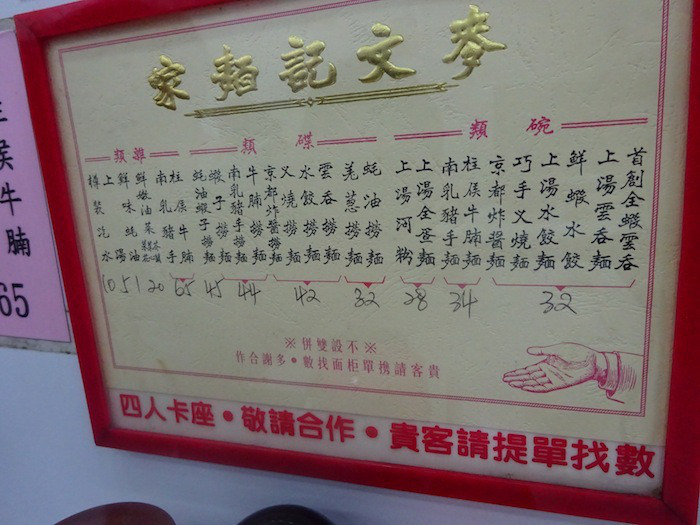 麥文記麵家
碗類
首創全蝦雲呑
上湯雲呑麵
鮮蝦水餃
上湯水餃麵
巧手叉燒麵
京都炸醬麵
32
柱侯牛腩麵
南乳豬手麵
34
上湯全蛋麵
上湯河粉
28
碟類
蚝油撈麵
羗葱撈麵
32
雲呑撈麵
水餃撈麵
叉燒撈麵
京都炸醬撈麵
42
牛腩撈麵
南乳豬手撈麵
44
蝦子撈麵
蚝油蝦子撈麵
45
雜類
柱侯牛腩
南乳豬手
65
鮮蚝油菜
20
鮮味蚝油
1
上湯
5
樽裝汽水
10
※不設雙併※
貴客請携單柜面找數•多謝合作
四人卡座•敬請合作•貴客請提單找數
侯牛腩
65